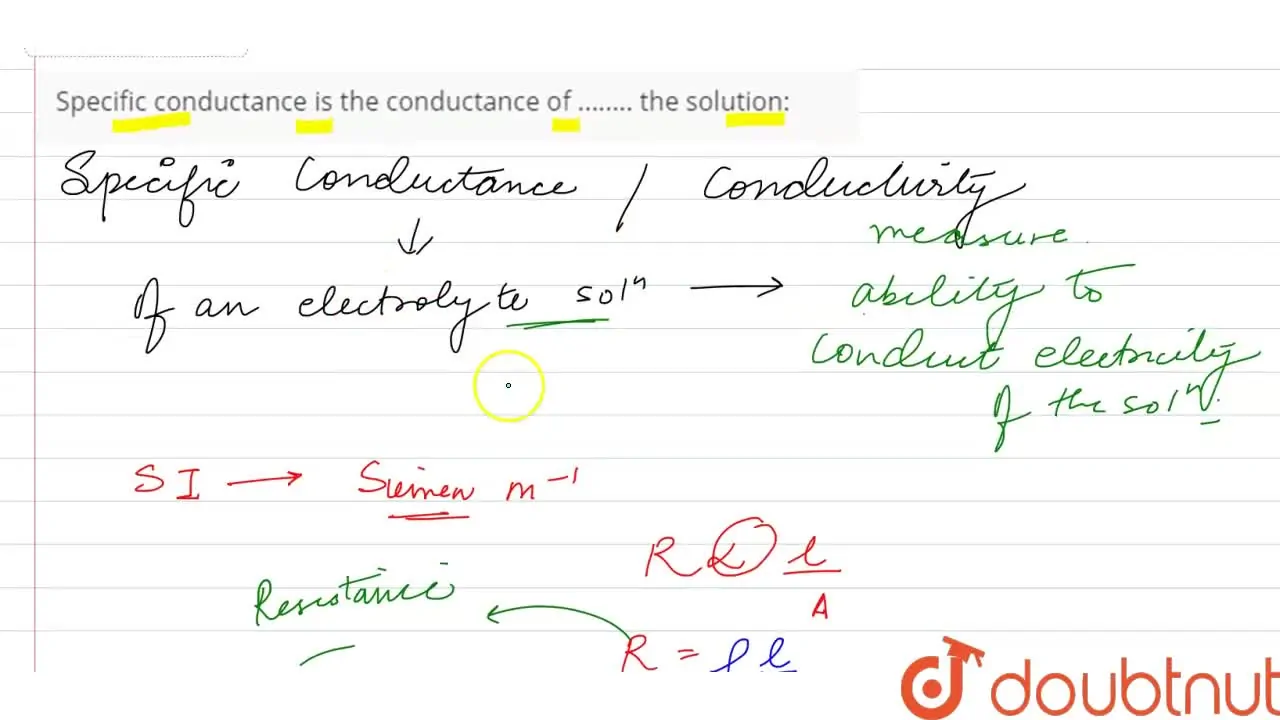 Specific conductance is the conductance of ........ the solution:
Specific Conductance / Conductivity
measure
Of an electrolyte solⁿ → ability to
conduct electricity
of the solⁿ.
SI → Siemen m⁻¹
R ∝ l
A
Resistance
R = ρ l
doubtnut